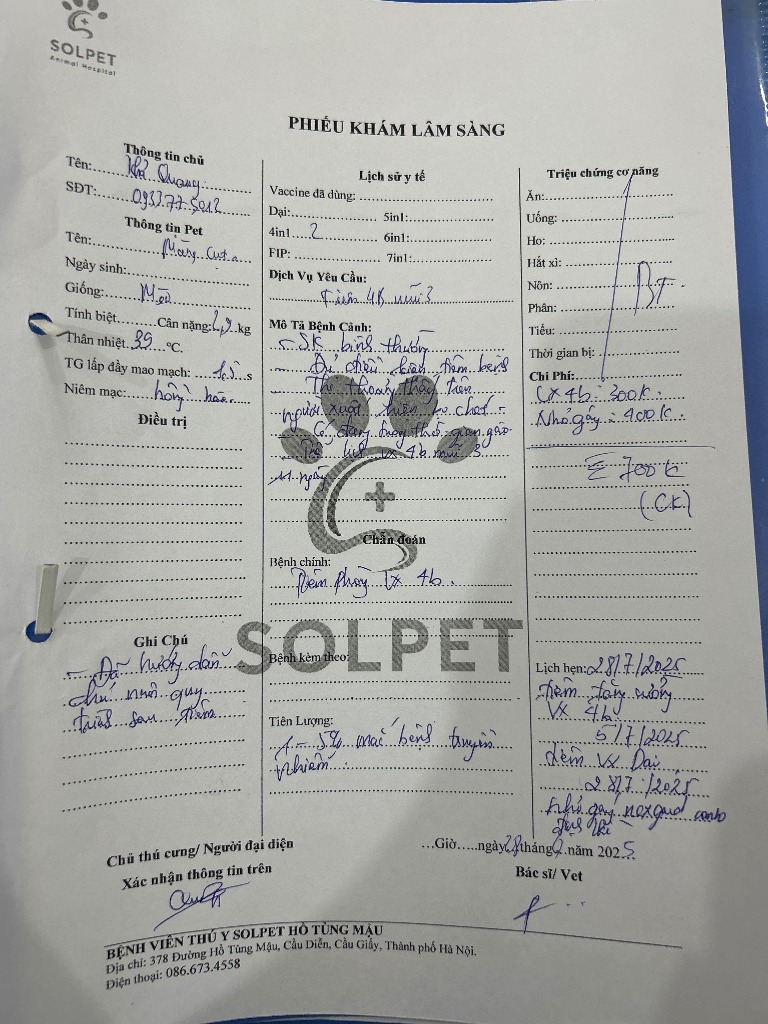 SOLPET
Animal Hospital
PHIẾU KHÁM LÂM SÀNG
Thông tin chủ
Tên: Quang
SĐT: 0937.77.5012
Thông tin Pet
Tên:
Ngày sinh:
Giống: Mèo
Tính biệt Cân nặng: 2,9 kg
Thân nhiệt 39 °C.
TG lấp đầy mao mạch: 1,5 s
Niêm mạc: hồng hào
Điều trị
Ghi Chú
- Đã hướng dẫn
chủ nuôi quy
trình sau tiêm
Lịch sử y tế
Vaccine đã dùng:
Dại: 5in1:
4in1 2 6in1:
FIP: 7in1:
Dịch Vụ Yêu Cầu:
Tiêm 4B mũi 3
Mô Tả Bệnh Cảnh:
- SK bình thường
- Đủ điều kiện tiêm
- Thi thoảng
người xuất hiện ho
- Có đang dùng
- VX 4b mũi 3
ngày
Chẩn đoán
Bệnh chính:
Tiêm phòng VX 4b.
SOLPET
Bệnh kèm theo:
Tiên Lượng:
1 - 5% mắc bệnh truyền
nhiễm.
Triệu chứng cơ năng
Ăn:
Uống:
Ho:
Hắt xì:
Nôn: BT
Phân:
Tiểu:
Thời gian bị:
Chi Phí:
VX 4b: 300K.
Nhỏ gáy: 400K.
Σ 700K
(CK)
Lịch hẹn: 28/7/2025
tiêm tăng cường
VX 4b
5/7/2025
tiêm VX Dại
28/7/2025
nhỏ gáy nexgard combo
định kì
Chủ thú cưng/ Người đại diện
Xác nhận thông tin trên
…Giờ…..ngày 28 tháng năm 2025
Bác sĩ/ Vet
BỆNH VIỆN THÚ Y SOLPET HỒ TÙNG MẬU
Địa chỉ: 378 Đường Hồ Tùng Mậu, Cầu Diễn, Cầu Giấy, Thành phố Hà Nội.
Điện thoại: 086.673.4558